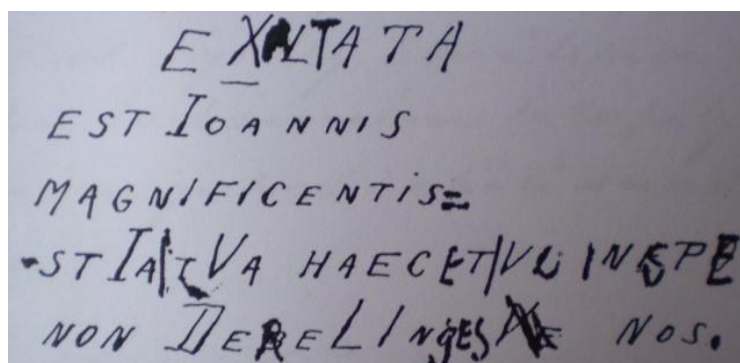 EXALTATA
EST IOANNIS
MAGNIFICENTIS=
-STIATVA HAEC ET
NON DERELINGES NOS.